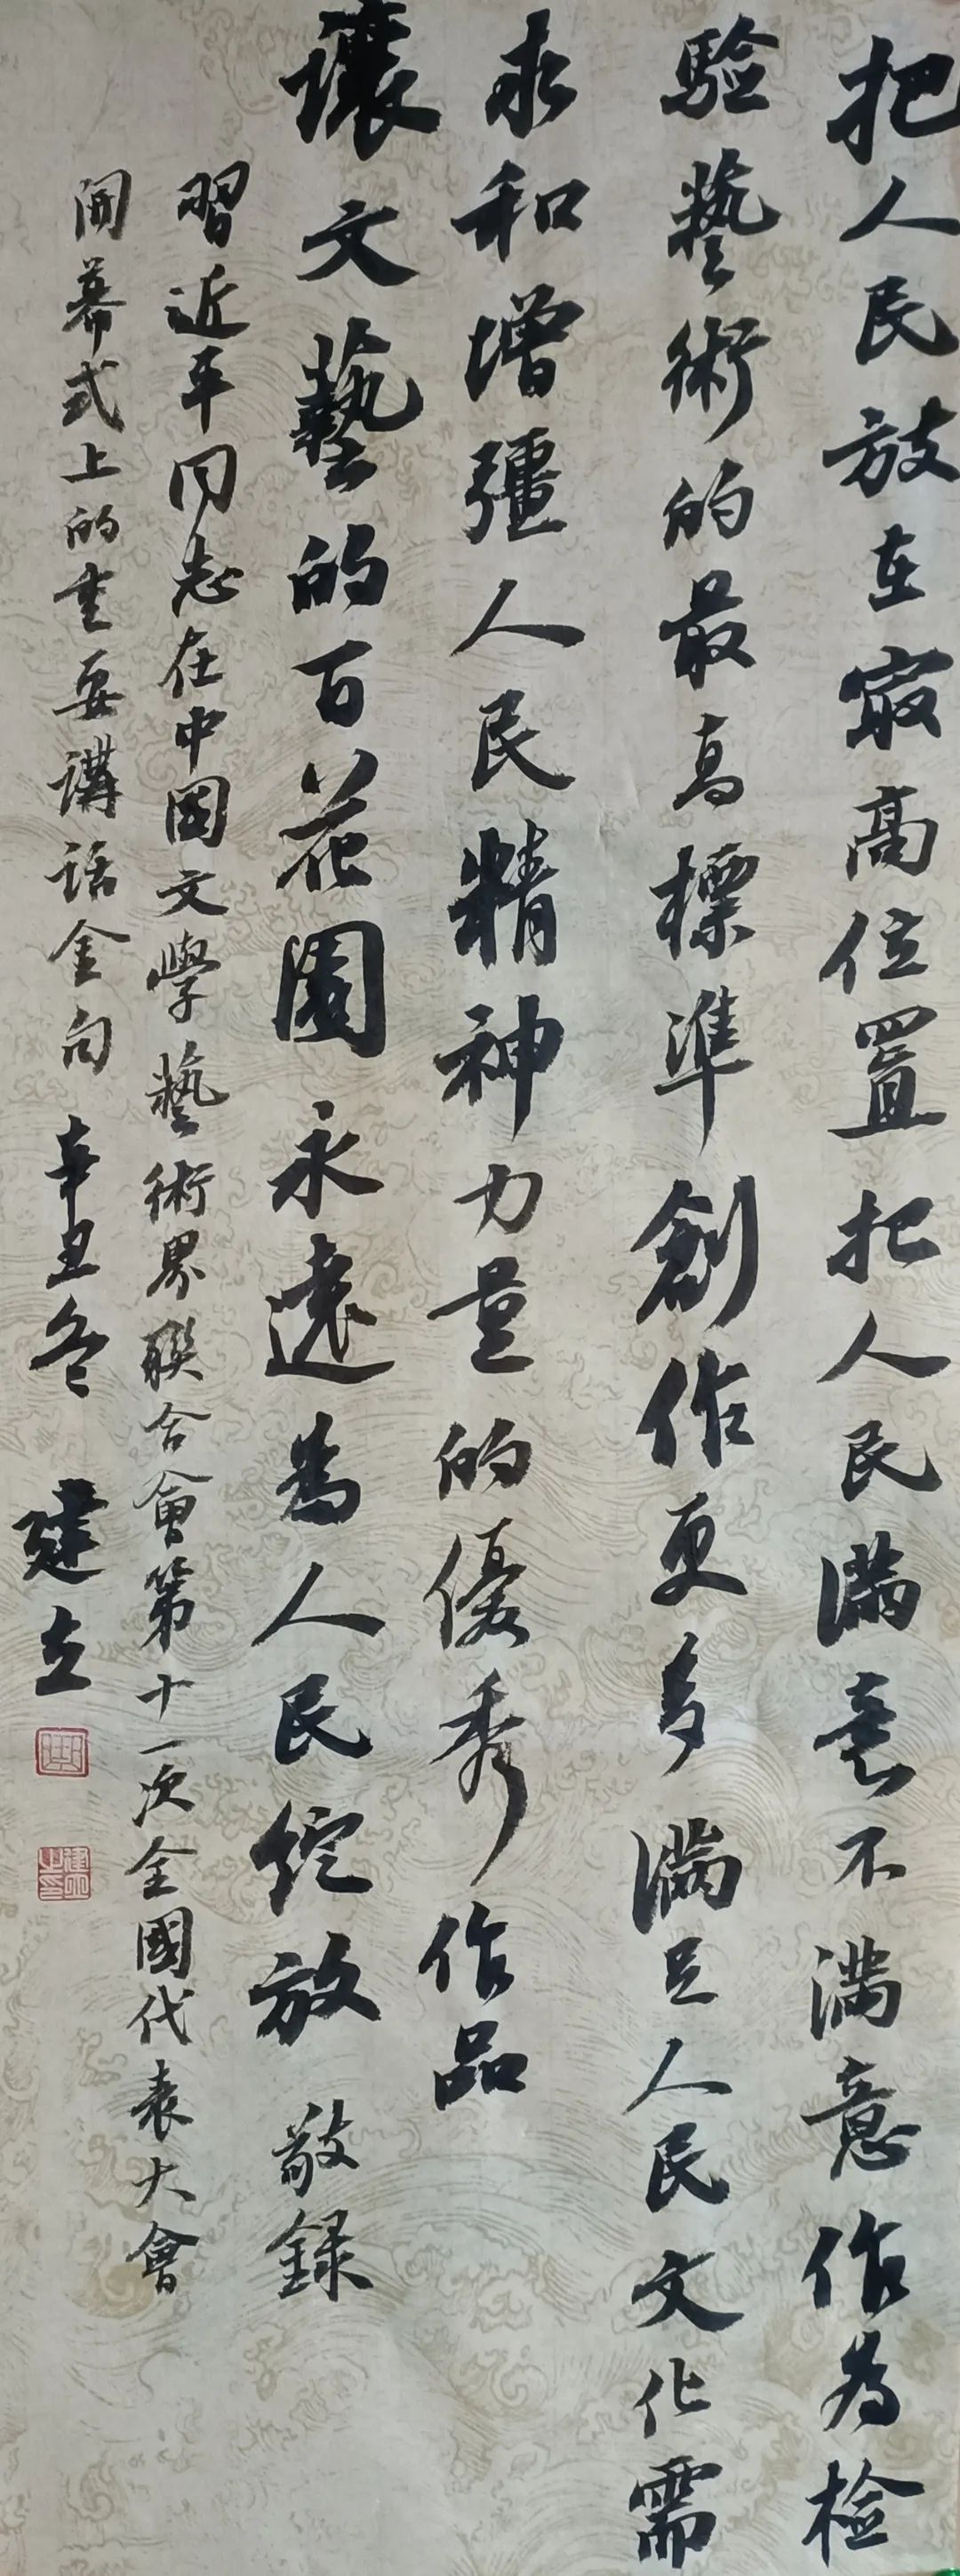 把人民放在最高位置把人民滿意不滿意作為檢
驗藝術的最高標準創作更多滿足人民文化需
求和增彊人民精神力量的優秀作品
讓文藝的百花園永遠為人民綻放敬錄
習近平同志在中國文學藝術界聯合會第十一次全國代表大會
開幕式上的重要講話金句辛丑冬建立